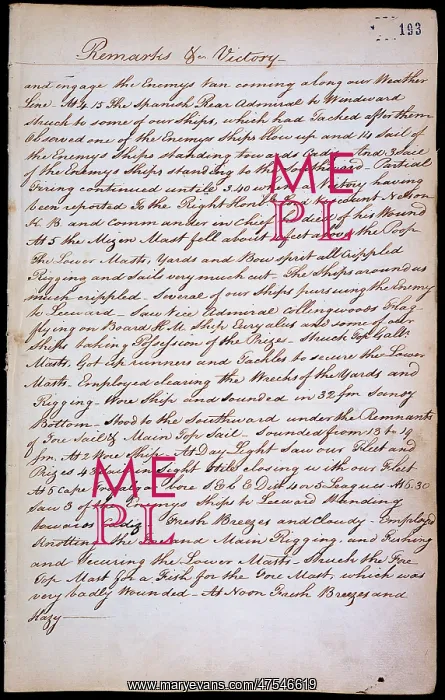 193
Remarks &c Victory
and engage the Enemys Van coming along our Weather
Line. At 4.15 The Spanish Rear Admiral to Windward
Struck to some of our Ships, which had Tacked after them
Observed one of the Enemys Ships blow up and 14 Sail of
the Enemys Ships standing towards Cadiz And 3 Sail
of the Enemys Ships standing to the Southward - Partial
Firing continued untill 3.40 when a Victory having
been reported to the Right Honble Viscount Nelson
K.B. and Commander in Chief he died of his Wound
At 5 the Mizon Mast fell about feet above the Poop
The Lower Masts, Yards and Bowsprit all Crippled
Rigging and Sails very much cut. The Ships around us
much crippled - Several of our Ships pursuing the Enemy
to Leeward - Saw Vice Admiral Collingwoods Flag
flying on Board H.M. Ship Euryalus and some of our
Ships taking Possession of the Prizes - Struck Top Gallt
Masts. Got up runners and Tackles to secure the Lower
Masts. Employed clearing the Wrecks of the Yards and
Rigging - Wore Ship and Sounded in 32 fm Sandy
Bottom - Stood to the Southward under the Remnants
of Fore Sail & Main Top Sail - Sounded from 13 to 19
fm. At 2 Wore Ship - At Day Light Saw our Fleet and
Prizes 43 Sail in Sight Still closing with our Fleet
At 6 Cape bore S E b E Dist or 5 Leagues At 6.30
Saw 3 of the Enemys Ships to Leeward Standing
towards Cadiz Fresh Breezes and Cloudy - Employed
Knotting the and Main Rigging, and Fishing
and Securing the Lower Masts - Struck the Fore
Top Mast for a Fish for the Fore Mast, which was
very badly Wounded - At Noon Fresh Breezes and
Hazy
ME
PL
ME
PL
www.maryevans.com/47546619